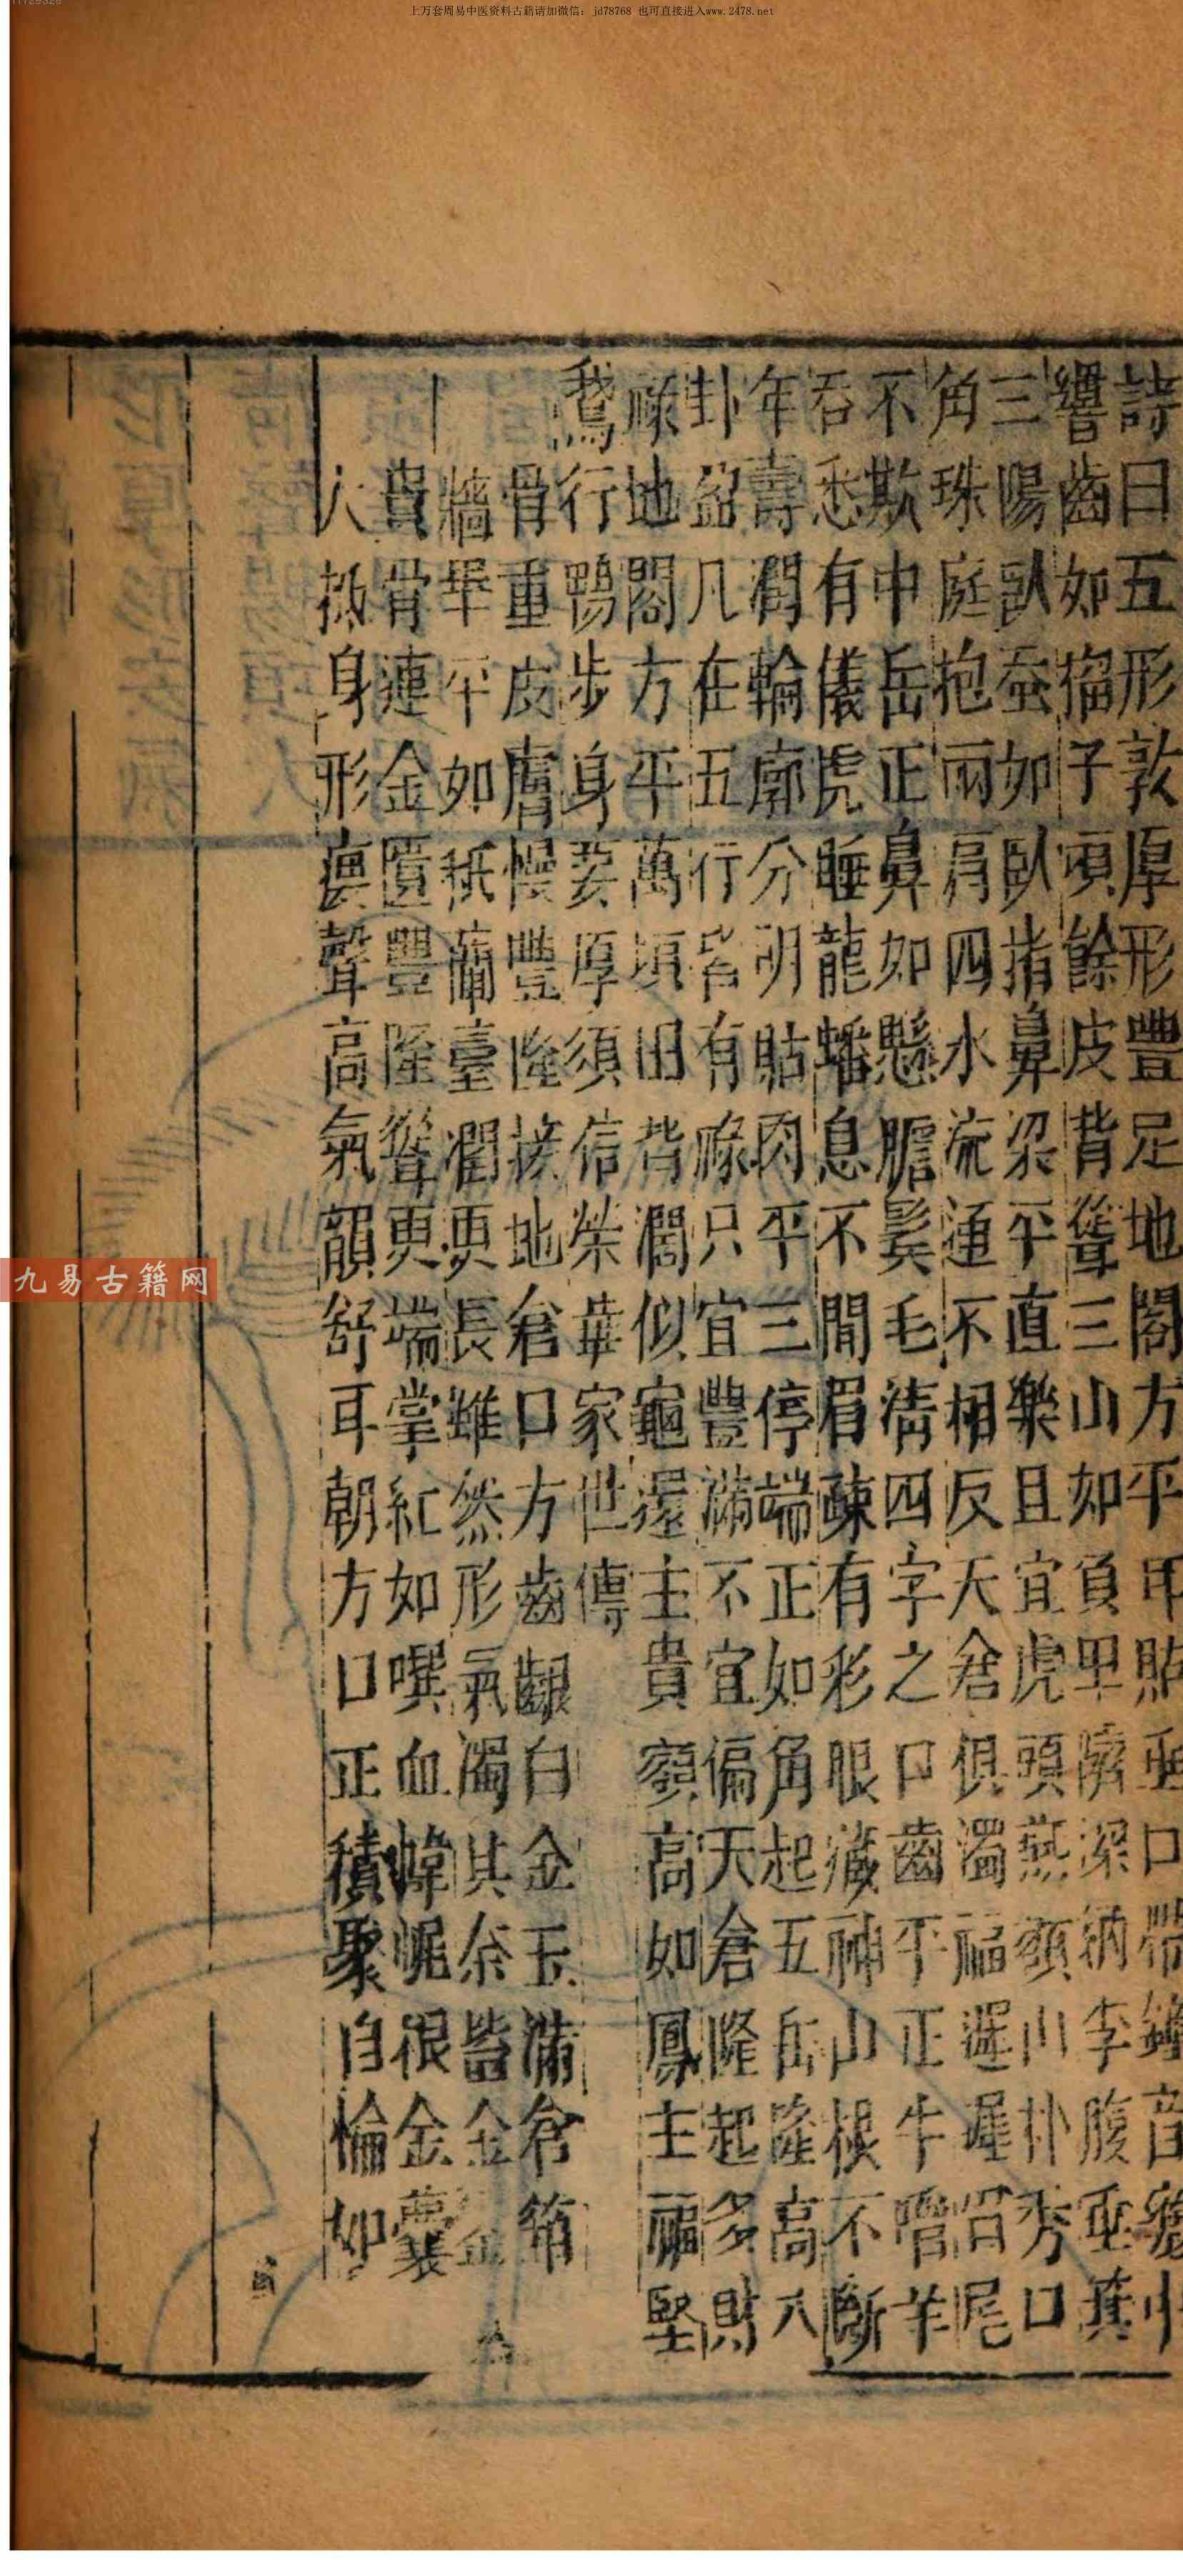 上万套周易中医资料古籍请加微信：jd78768 也可直接进入www.2478.net
詩曰五形敦厚形豐足地閣方平甲貼垂口帶鐘音聲
齒如猫子項餘皮背聳三山如負卑臍深納李腹垂箕
三陽臥蚕如臥指鼻梁平直樂且宜虎頭燕頷川扑秀口
角珠庭抱兩肩四水流通不相反天倉俱濁福遲遲眉尾
不欺中岳正鼻如懸膽髮毛清四字之口齒平正牛噌羊
吞悉有儀虎睡龍蟠息不聞眉疎有彩眼藏神山根不斷
年壽潤輪廓分明貼肉平三停端正如角起五岳隆高八
卦 几在五行皆有祿只宜豐滿不宜偏天倉隆起多財
祿地閣方平萬頃田背濶似龜還主貴額高如鳳主福堅
鵞行鴨步身 厚須信榮華家世傳
骨重皮膚慢豐隆接地倉口方齒齦白金玉滿倉箱
牆 平如 蘭臺濶更長雖然形氣濁其 皆金金
貴骨連金匱豐隆聳更端掌紅如噀血 根金
人 身形 聲高氣韻舒耳朝方口正積聚自 如
九易古籍网